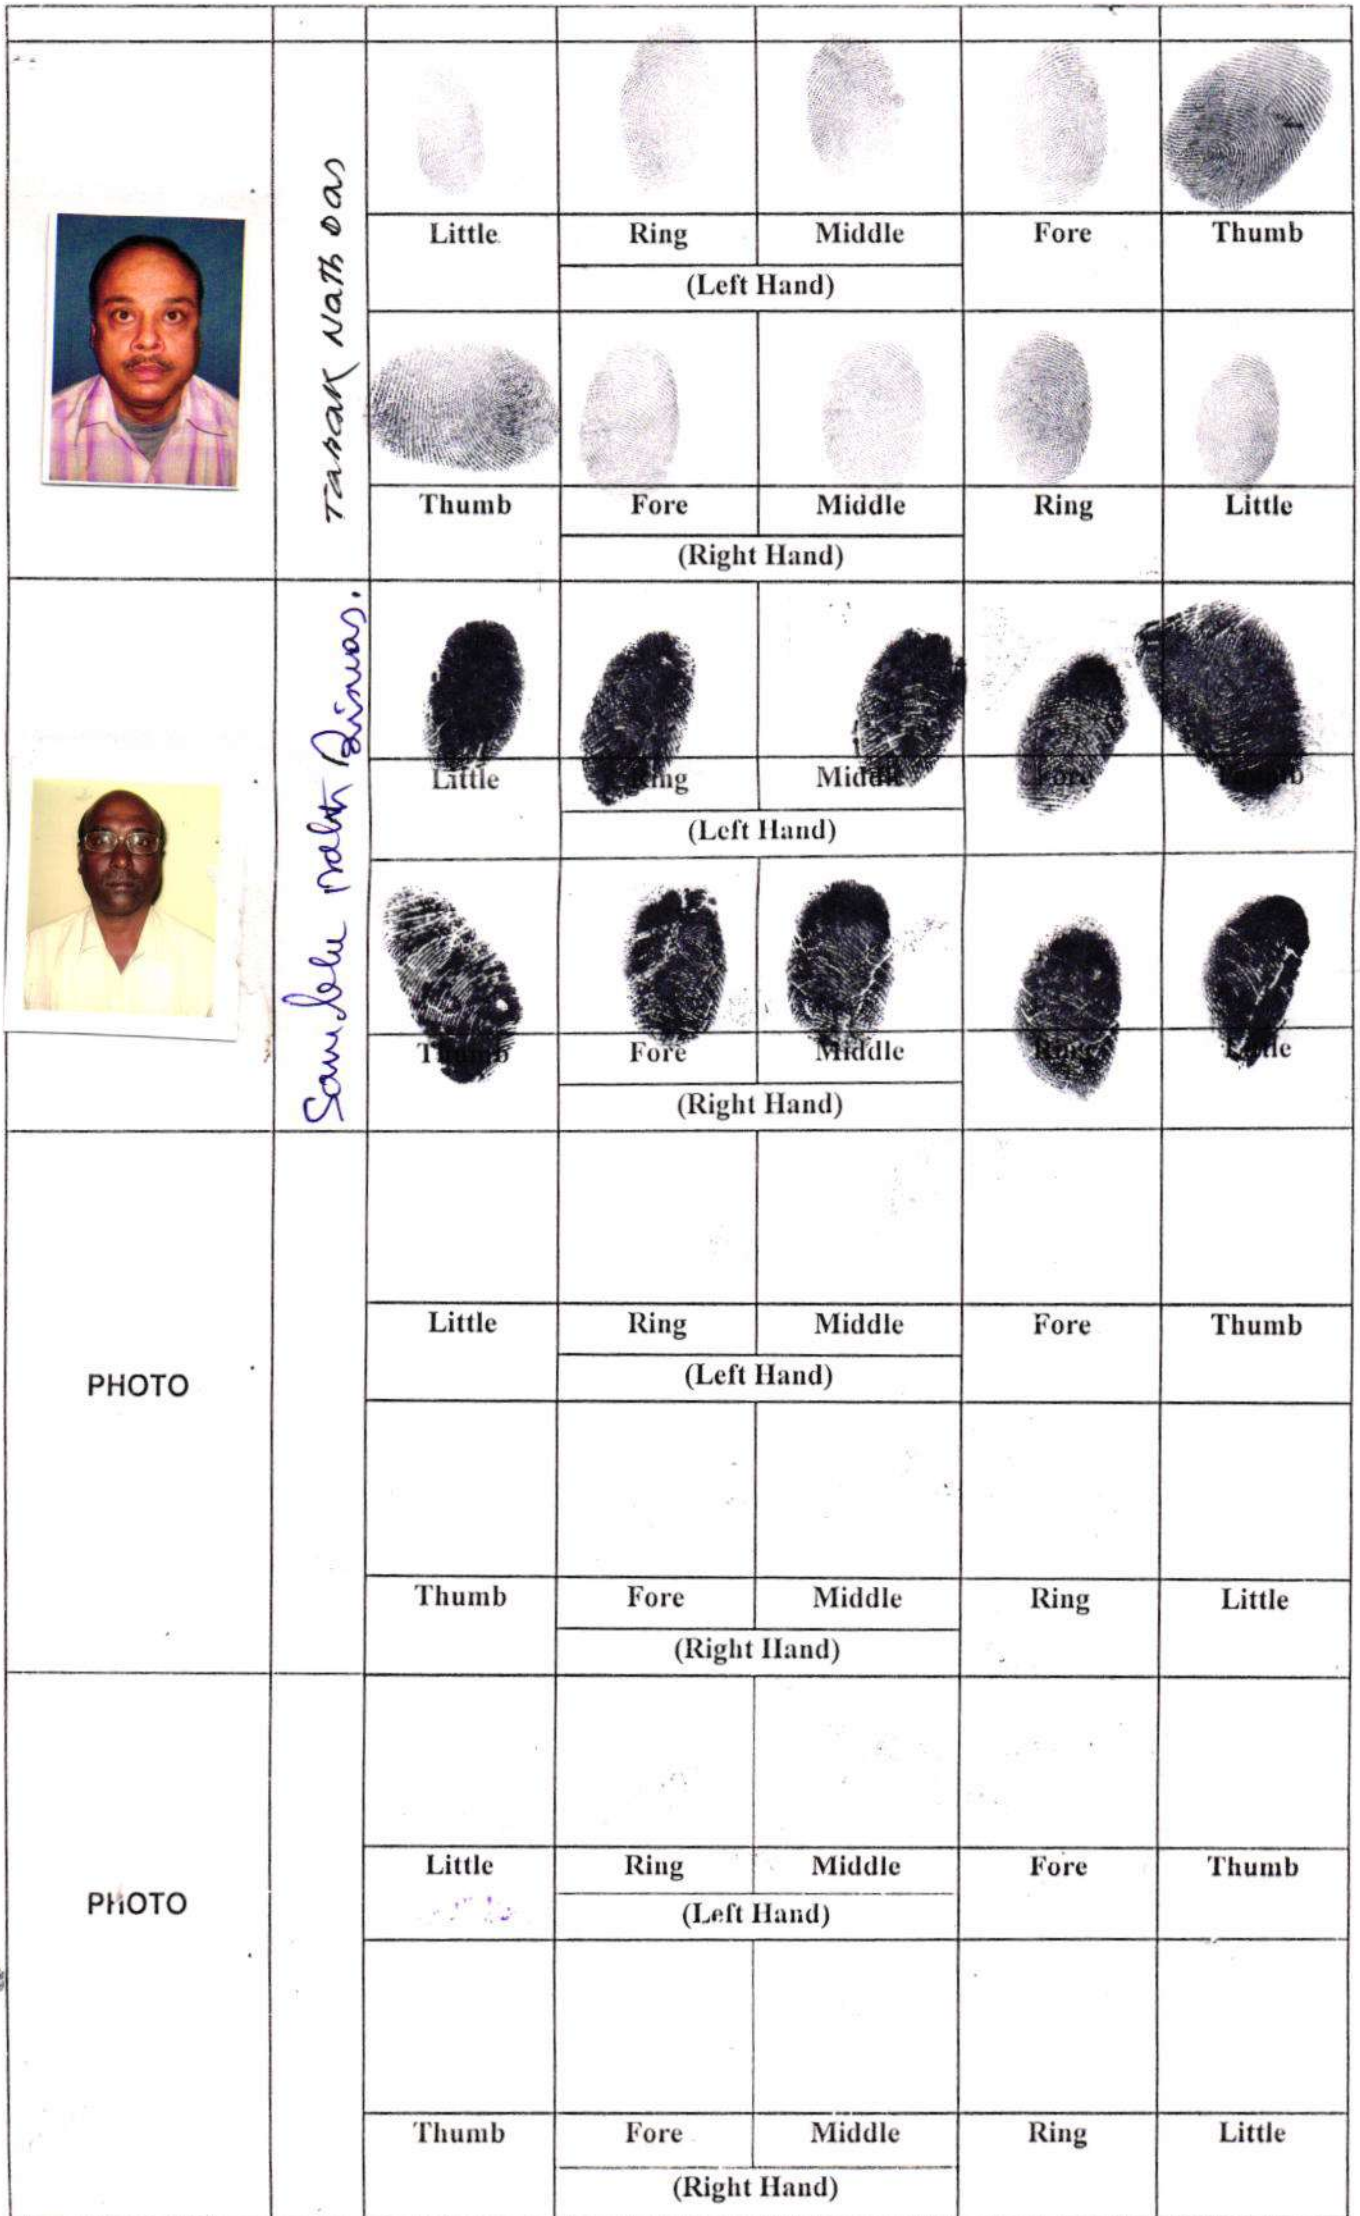 Tarak Nath Das
Little Ring Middle Fore Thumb
(Left Hand)
Thumb Fore Middle Ring Little
(Right Hand)
Biswas.
Little Ring Middle Fore Thumb
(Left Hand)
Thumb Fore Middle Ring Little
(Right Hand)
PHOTO
Little Ring Middle Fore Thumb
(Left Hand)
Thumb Fore Middle Ring Little
(Right Hand)
PHOTO
Little Ring Middle Fore Thumb
(Left Hand)
Thumb Fore Middle Ring Little
(Right Hand)